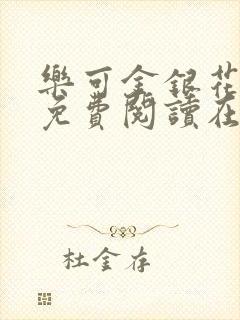 樂可金銀花
免費閱讀在
杜金存